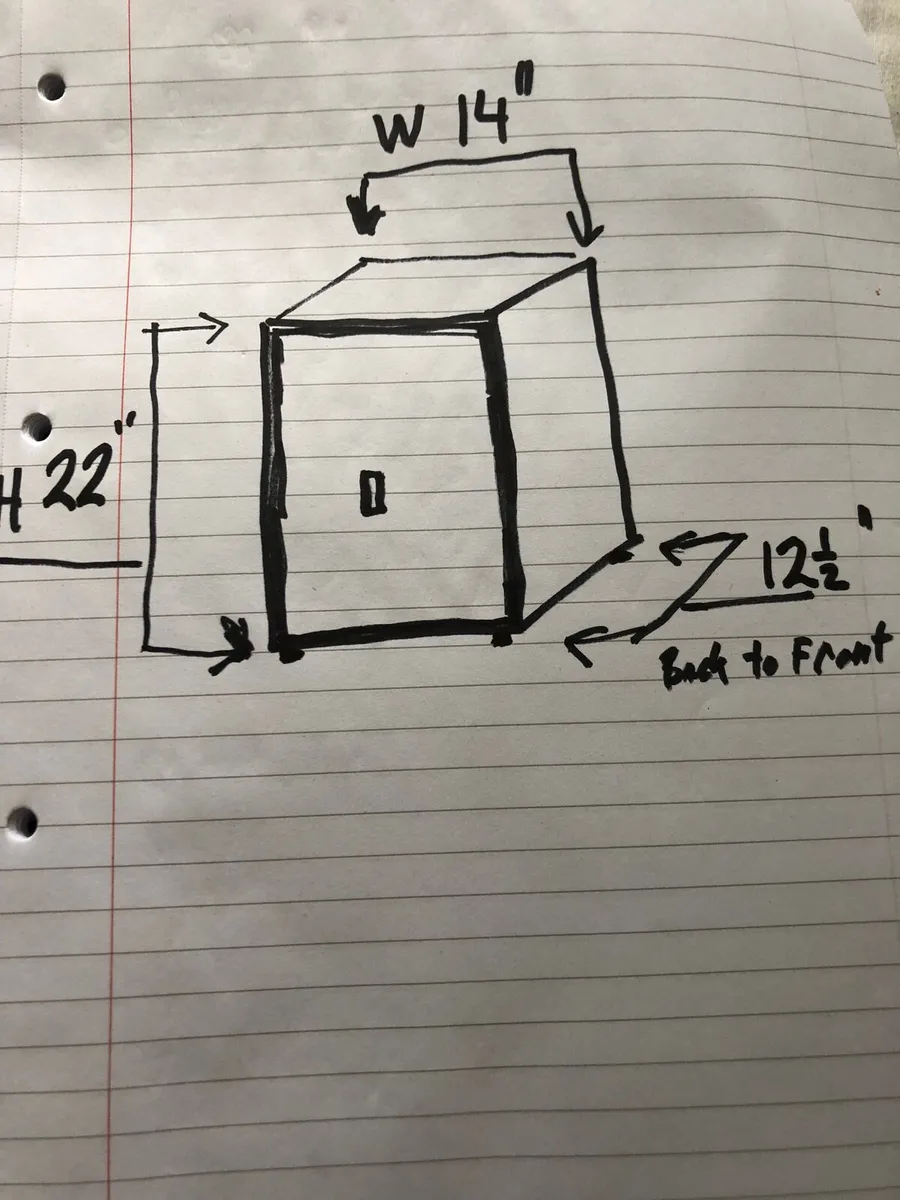 W 14"
H 22"
12½"
Back to Front